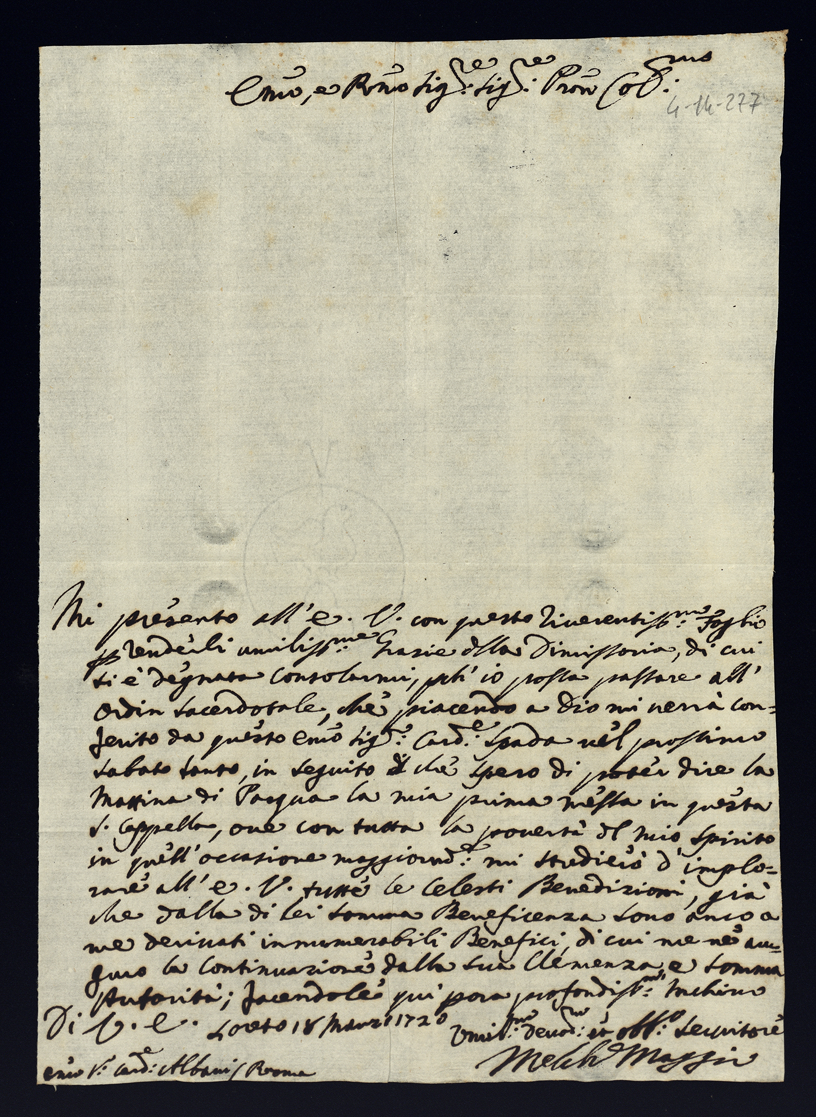 Emo, e Rmo Sig.re Sig.re Pron Col.mo
4-14-277
Mi presento all'E. V. con questo riverentiss.mo Foglio
p renderli umiliss.me Grazie della Dimissoria, di cui
si è degnata consolarmi, pchè io possa passare all'
Ordin Sacerdotale, che piacendo a Dio mi verrà con=
ferito da questo Emo Sig.r Card.e Spada nel prossimo
Sabato Santo, in seguito di che spero di poter dire la
Mattina di Pasqua la mia prima Messa in questa
S. Cappella, ove con tutta la povertà del mio Spirito
in quell'occasione maggiorm.e mi studierò d'implo=
rare all'E. V. tutte le Celesti Benedizioni, già
che dalla di Lei Somma Beneficenza sono anco a
me derivati innumerabili Benefici, di cui me ne au=
guro la Continuazione dalla sua Clemenza, e Somma
Autorità; facendole qui p ora profondiss.mo Inchino
Di V. E. Loreto 18 Marzo 1720 Umil.mo Devot.mo et Obb.o Servitore
Emo S.r Card.e Albani / Roma Melch.e Maggi